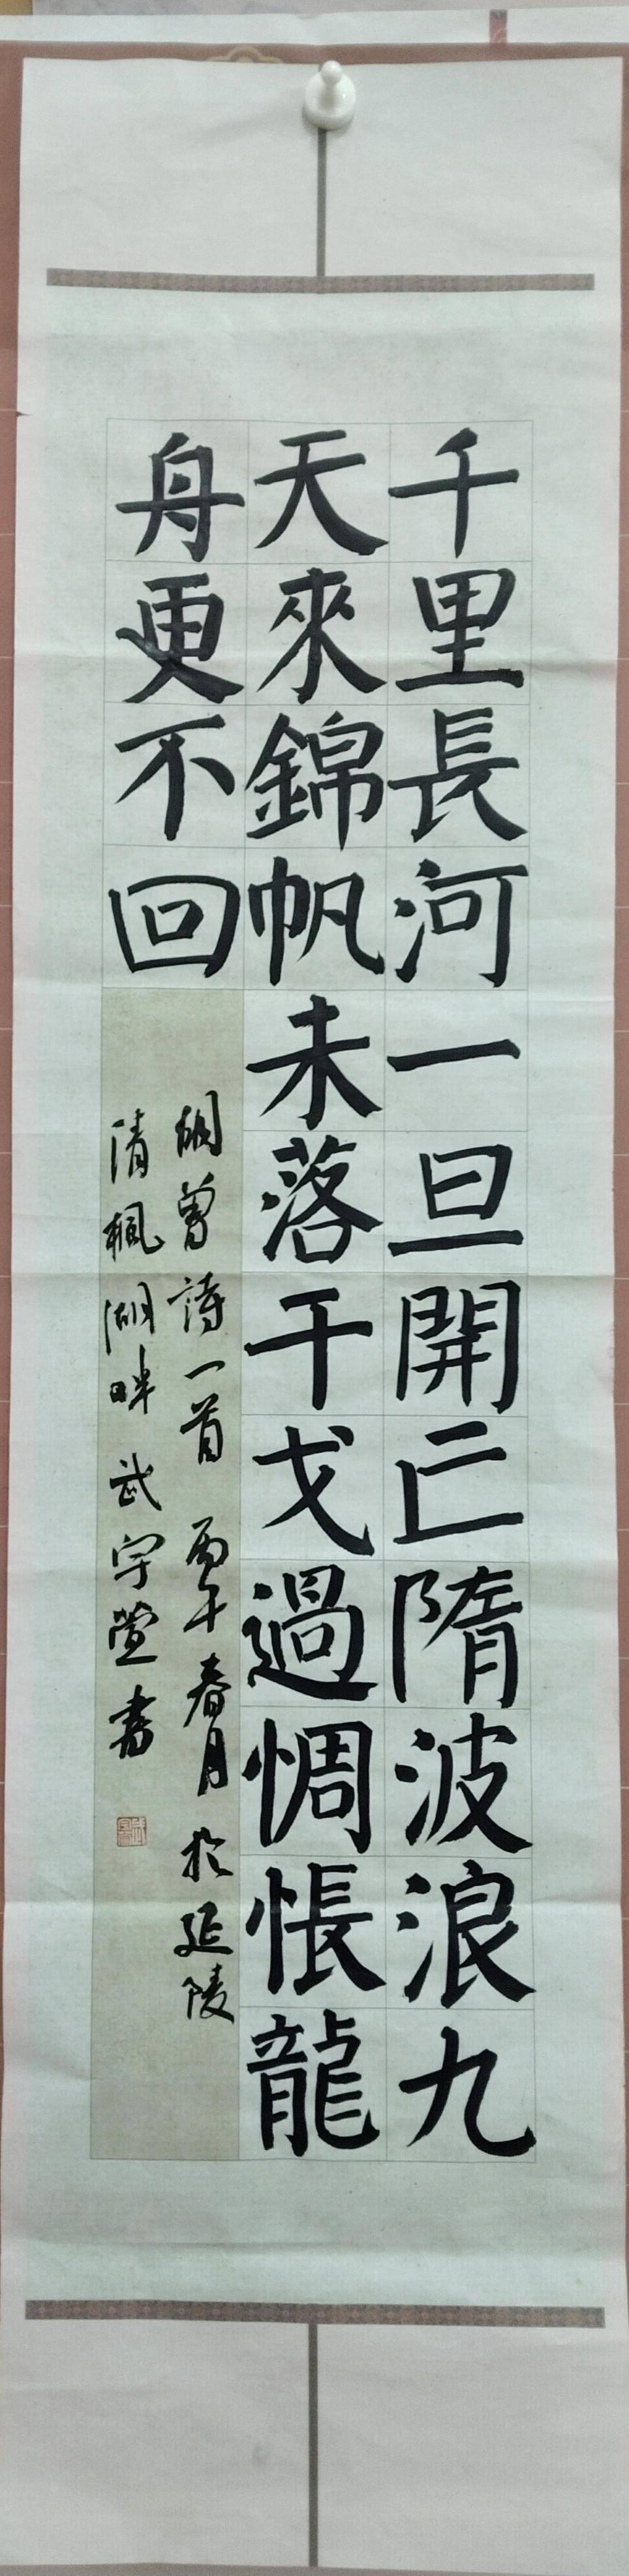 千里長河一旦開亡隋波浪九
天來錦帆未落干戈過惆悵龍
舟更不回
胡曾詩一首 丙午春月於延陵
清楓湖畔 武宇萱書